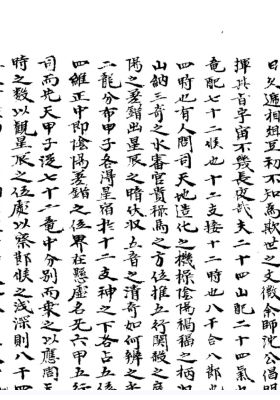 日久遞相互初不知為欺世之文微余師陀公倡明
揮其旨宇宙不幾長夜哉夫二十四山配二十四氣也
竜配七十二候也十二支接十二時也八干合八節也
四時也有人問司天地造化之機操陰陽禍福之柄
山納三奇之水審官貴祿馬之方位推五行關殺之
陽之差錯出星辰之暗伏収五音之清奇如何辨之
二龍分布甲子各得星宿於十二支神之下各占五
四維正中即陰陽差錯之位界在懸虛名无六甲五行
司而先天甲子逆七十二竜中分別而乘之以應周天
時之数以觀星辰之位處以察節候之淺深則八千四